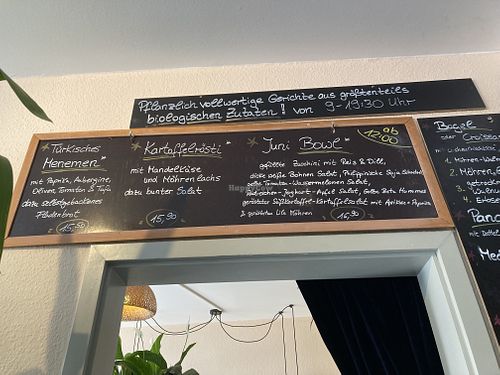 Pflanzlich vollwertige Gerichte aus größtenteils
biologischen Zutaten! von 9-19:30 Uhr
Türkisches
Henemen"
mit Paprika, Aubergine,
Oliven, Tomaten & Tofu
dazu selbstgebackenes
Fladenbrot
15,50
Kartoffelrösti"
mit Mandelkäse
und Möhrenlachs
dazu bunter Salat
15,90
Juni Bowl"
ab
12:00
gefüllte Zucchini mit Reis & Dill,
dicke weiße Bohnen Salat, Philippinische Soja
Tomaten-Wassermelonen Salat,
Joghurt-Apfel Salat, Rote Bete Hummus
gerösteter Süßkartoffel-Kartoffelsalat mit Aprikose + Paprika
& gerösteten lila Möhren
16,90
Bagel
oder Croissa
Möhren-
2. Möhren,
3.
4.
Pan